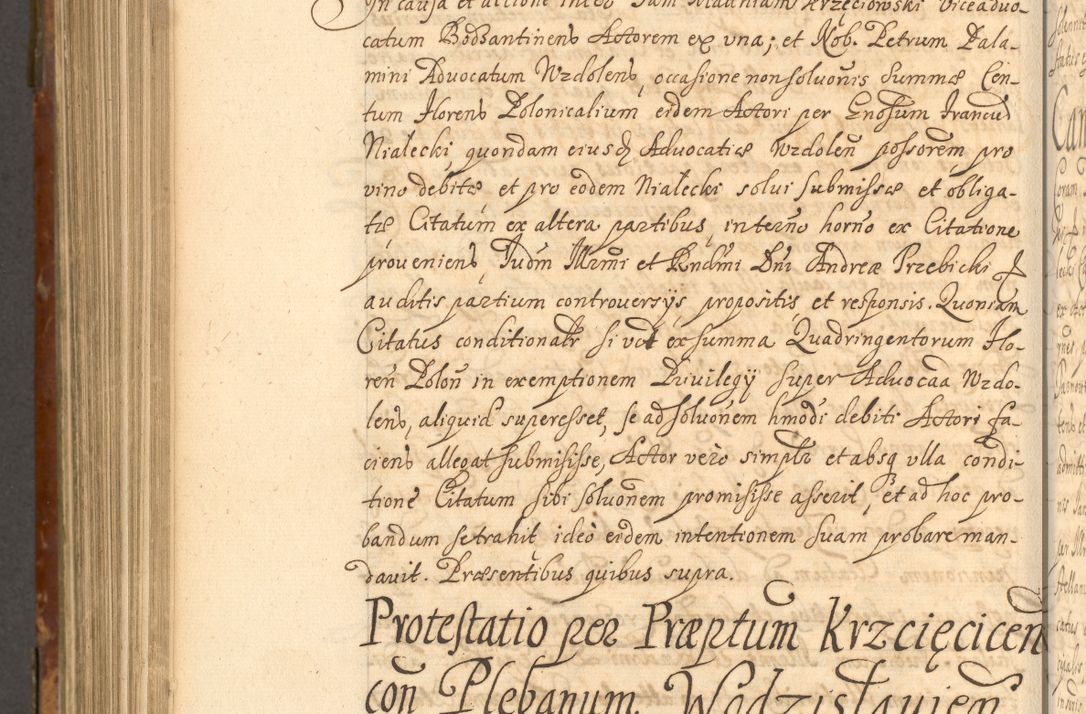 In causa et actione inter Fam. Mathiam Krzeciowski Viceadvo-
catum Bodzantinens Actorem ex una; et Nob. Petrum Dala-
mini Advocatum Wzdolens, occasione non soluonis Summæ Cen-
tum Florens Polonicalium eidem Actori per Gnosum Francud
Nialecki, quondam eiusd Advocatiæ Wzdoleñ possorem, pro
vino debitæ, et pro eodem Nialecki solui submissæ et obliga-
tæ Citatum ex altera partibus, in terno horño ex Citatione
proueniens, Judm Illrmi et Rndmi Dni Andreæ Przebicki
auditis partium controversÿs, propositis et responsis. Quoniam
Citatus conditionalr si vt ex summa Quadringentorum Flo-
reñ Poloñ in exemptionem Priuilegÿ super Advocaa Wzdo-
lens, aliquid superesset, se ad soluonem hmodi debiti Actori fa-
ciens allegat submisisse, Actor vero simplr et absq vlla condi-
tione Citatum sibi soluonem promisisse asserit, et ad hoc pro-
bandum se trahit ideo eidem intentionem suam probare man-
dauit. Præsentibus quibus supra.
Protestatio per Præptum Krzcięcicen
con Plebanum Wodzislauien